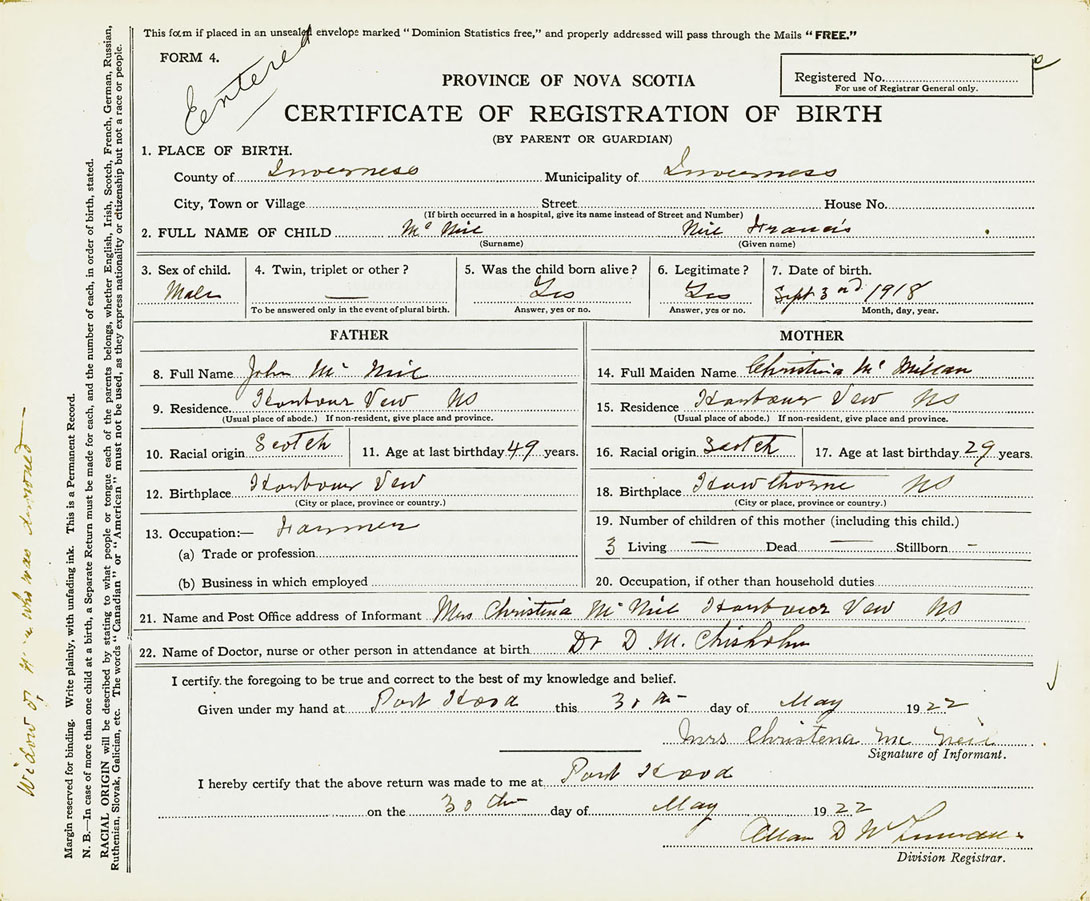 This form if placed in an unsealed envelope marked "Dominion Statistics free," and properly addressed will pass through the Mails "FREE."
FORM 4.
Entered
Registered No.
For use of Registrar General only.
PROVINCE OF NOVA SCOTIA
CERTIFICATE OF REGISTRATION OF BIRTH
(BY PARENT OR GUARDIAN)
1. PLACE OF BIRTH.
County of Inverness Municipality of Inverness
City, Town or Village Street House No.
(If birth occurred in a hospital, give its name instead of Street and Number)
2. FULL NAME OF CHILD Mc Neil Neil Francis
(Surname) (Given name)
3. Sex of child. 4. Twin, triplet or other? 5. Was the child born alive? 6. Legitimate? 7. Date of birth.
Male — Yes Yes Sept 3rd 1918
To be answered only in the event of plural birth. Answer, yes or no. Answer, yes or no. Month, day, year.
FATHER MOTHER
8. Full Name John Mc Neil 14. Full Maiden Name Christina Mc Millan
9. Residence Harbour Vew NS 15. Residence Harbour Vew NS
(Usual place of abode.) If non-resident, give place and province. (Usual place of abode.) If non-resident, give place and province.
10. Racial origin Scotch 11. Age at last birthday 49 years. 16. Racial origin Scotch 17. Age at last birthday 29 years.
12. Birthplace Harbour Vew 18. Birthplace Hawthorne NS
(City or place, province or country.) (City or place, province or country.)
13. Occupation:— Farmer 19. Number of children of this mother (including this child.)
(a) Trade or profession 3 Living — Dead — Stillborn -
(b) Business in which employed 20. Occupation, if other than household duties
21. Name and Post Office address of Informant Mrs Christina Mc Neil Harbour Vew NS
22. Name of Doctor, nurse or other person in attendance at birth Dr D. M. Chisholm
I certify the foregoing to be true and correct to the best of my knowledge and belief.
Given under my hand at Port Hood this 30th day of May 1922
Mrs Christena Mc Neil
Signature of Informant.
I hereby certify that the above return was made to me at Port Hood
on the 30th day of May 1922
Allan D
Division Registrar.
Widow of who was drowned
Margin reserved for binding. Write plainly, with unfading ink. This is a Permanent Record.
N. B.—In case of more than one child at a birth, a Separate Return must be made for each, and the number of each, in order of birth, stated.
RACIAL ORIGIN will be described by stating to what people or tongue each of the parents belongs, whether English, Irish, Scotch, French, German, Russian,
Ruthenian, Slovak, Galician, etc. The words "Canadian" or "American" must not be used, as they express nationality or citizenship but not a race or people.